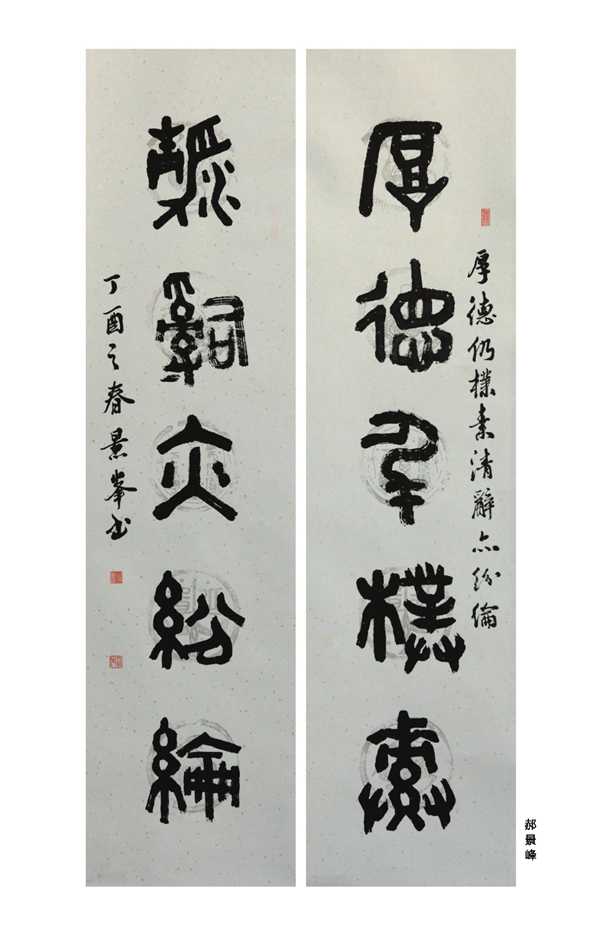 厚德仍樸素
厚德仍樸素清辭亦紛綸
清辭亦紛綸
丁酉之春景峯书
郝景峰